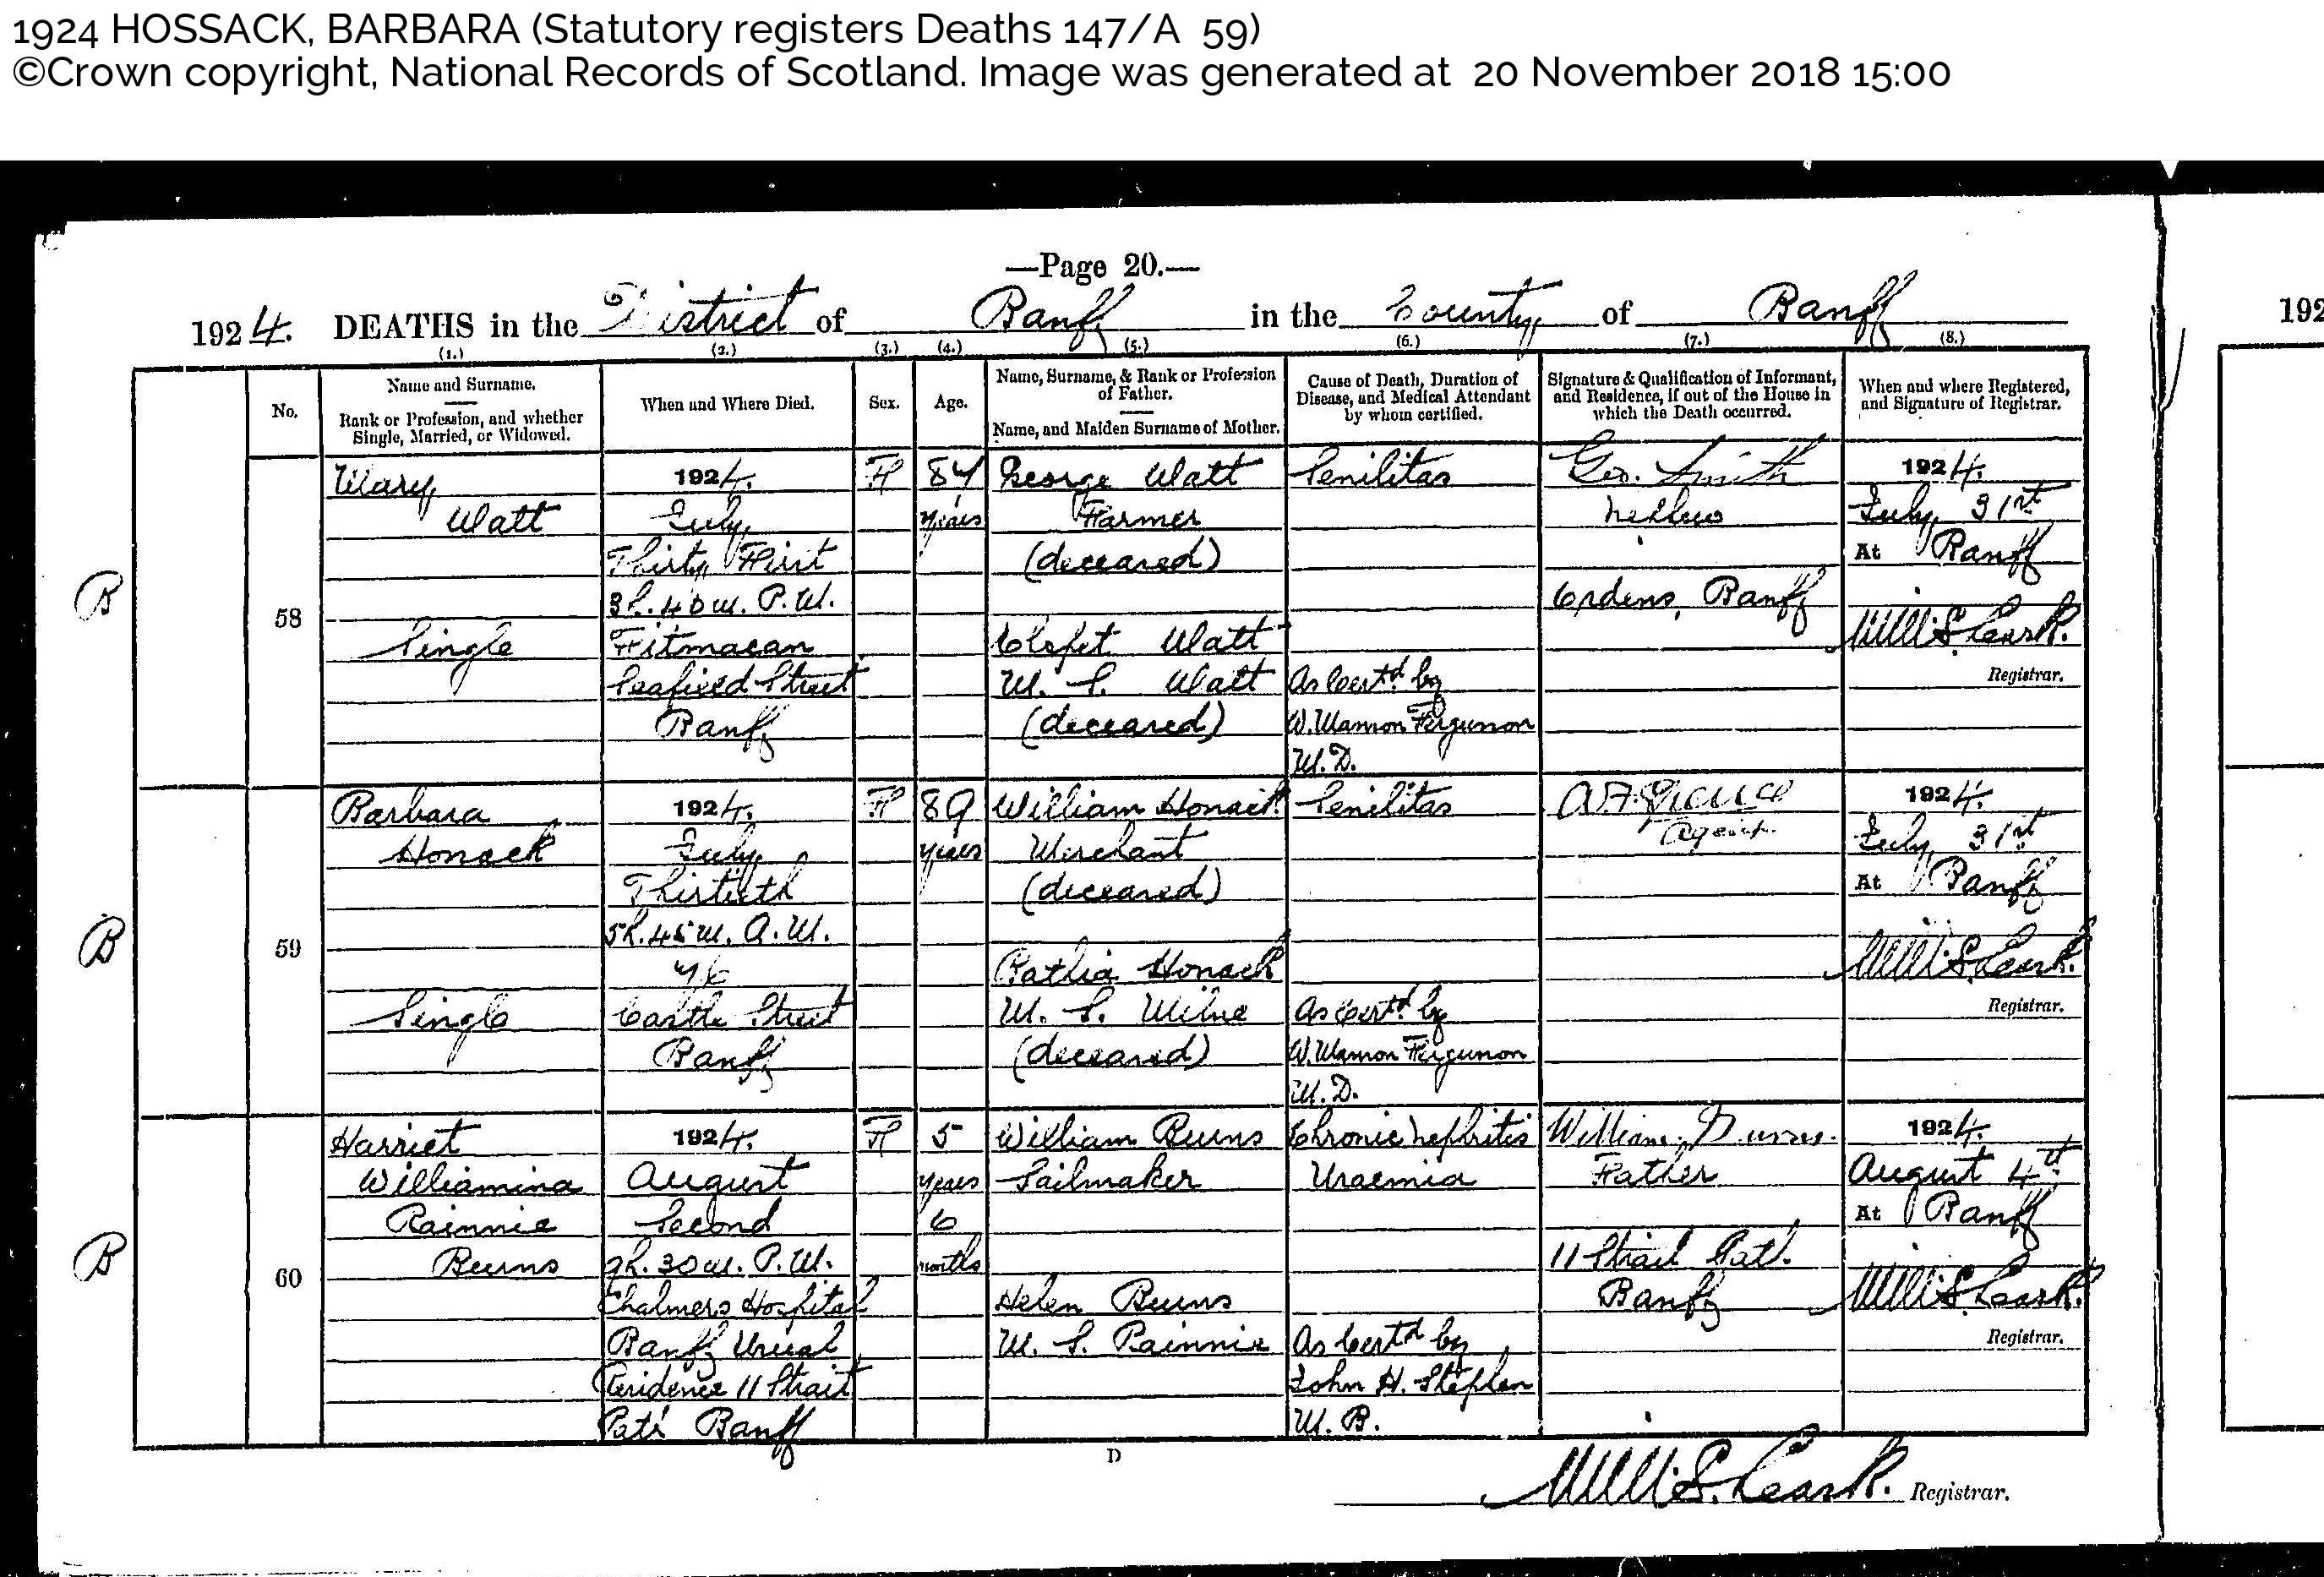 1924 HOSSACK, BARBARA (Statutory registers Deaths 147/A 59)
©Crown copyright, National Records of Scotland. Image was generated at 20 November 2018 15:00
—Page 20.—
1924. DEATHS in the District of Banff in the County of Banff
192
(1.) (2.) (3.) (4.) (5.) (6.) (7.) (8.)
No.
Name and Surname.
Rank or Profession, and whether
Single, Married, or Widowed.
When and Where Died.
Sex.
Age.
Name, Surname, & Rank or Profession
of Father.
Name, and Maiden Surname of Mother.
Cause of Death, Duration of
Disease, and Medical Attendant
by whom certified.
Signature & Qualification of Informant,
and Residence, if out of the House in
which the Death occurred.
When and where Registered,
and Signature of Registrar.
B
58
Mary
Watt
Single
1924.
July
Thirty First
3h. 40m. P.M.
Seafield Street
Banff
F
84
years
George Watt
Farmer
(deceased)
Watt
M. S. Watt
(deceased)
Senilitas
As Certd by
W. Manson Fergusson
M.D.
Geo. Smith
Nephew
Ordens, Banff
1924.
July 31st
At Banff
Registrar.
B
59
Barbara
Hossack
Single
1924.
July
Thirtieth
5h. 45m. A.M.
Castle Street
Banff
F
89
years
William Hossack
Merchant
(deceased)
Bathia Hossack
M. S. Milne
(deceased)
Senilitas
As Certd by
W. Manson Fergusson
M.D.
Agent.
1924.
July 31st
At Banff
Registrar.
B
60
Harriet
Williamina
Rainnie
Burns
1924.
August
Second
9h. 30m. P.M.
Chalmers Hospital
Banff Usual
Residence 11 Strait
Path Banff
F
5
years
6
months
William Burns
Sailmaker
Helen Burns
M. S. Rainnie
Chronic Nephritis
Uraemia
As Certd by
John H. Stephen
M.B.
William Burns.
Father
11 Strait Path.
Banff
1924.
August 4th
At Banff
Registrar.
D
Registrar.